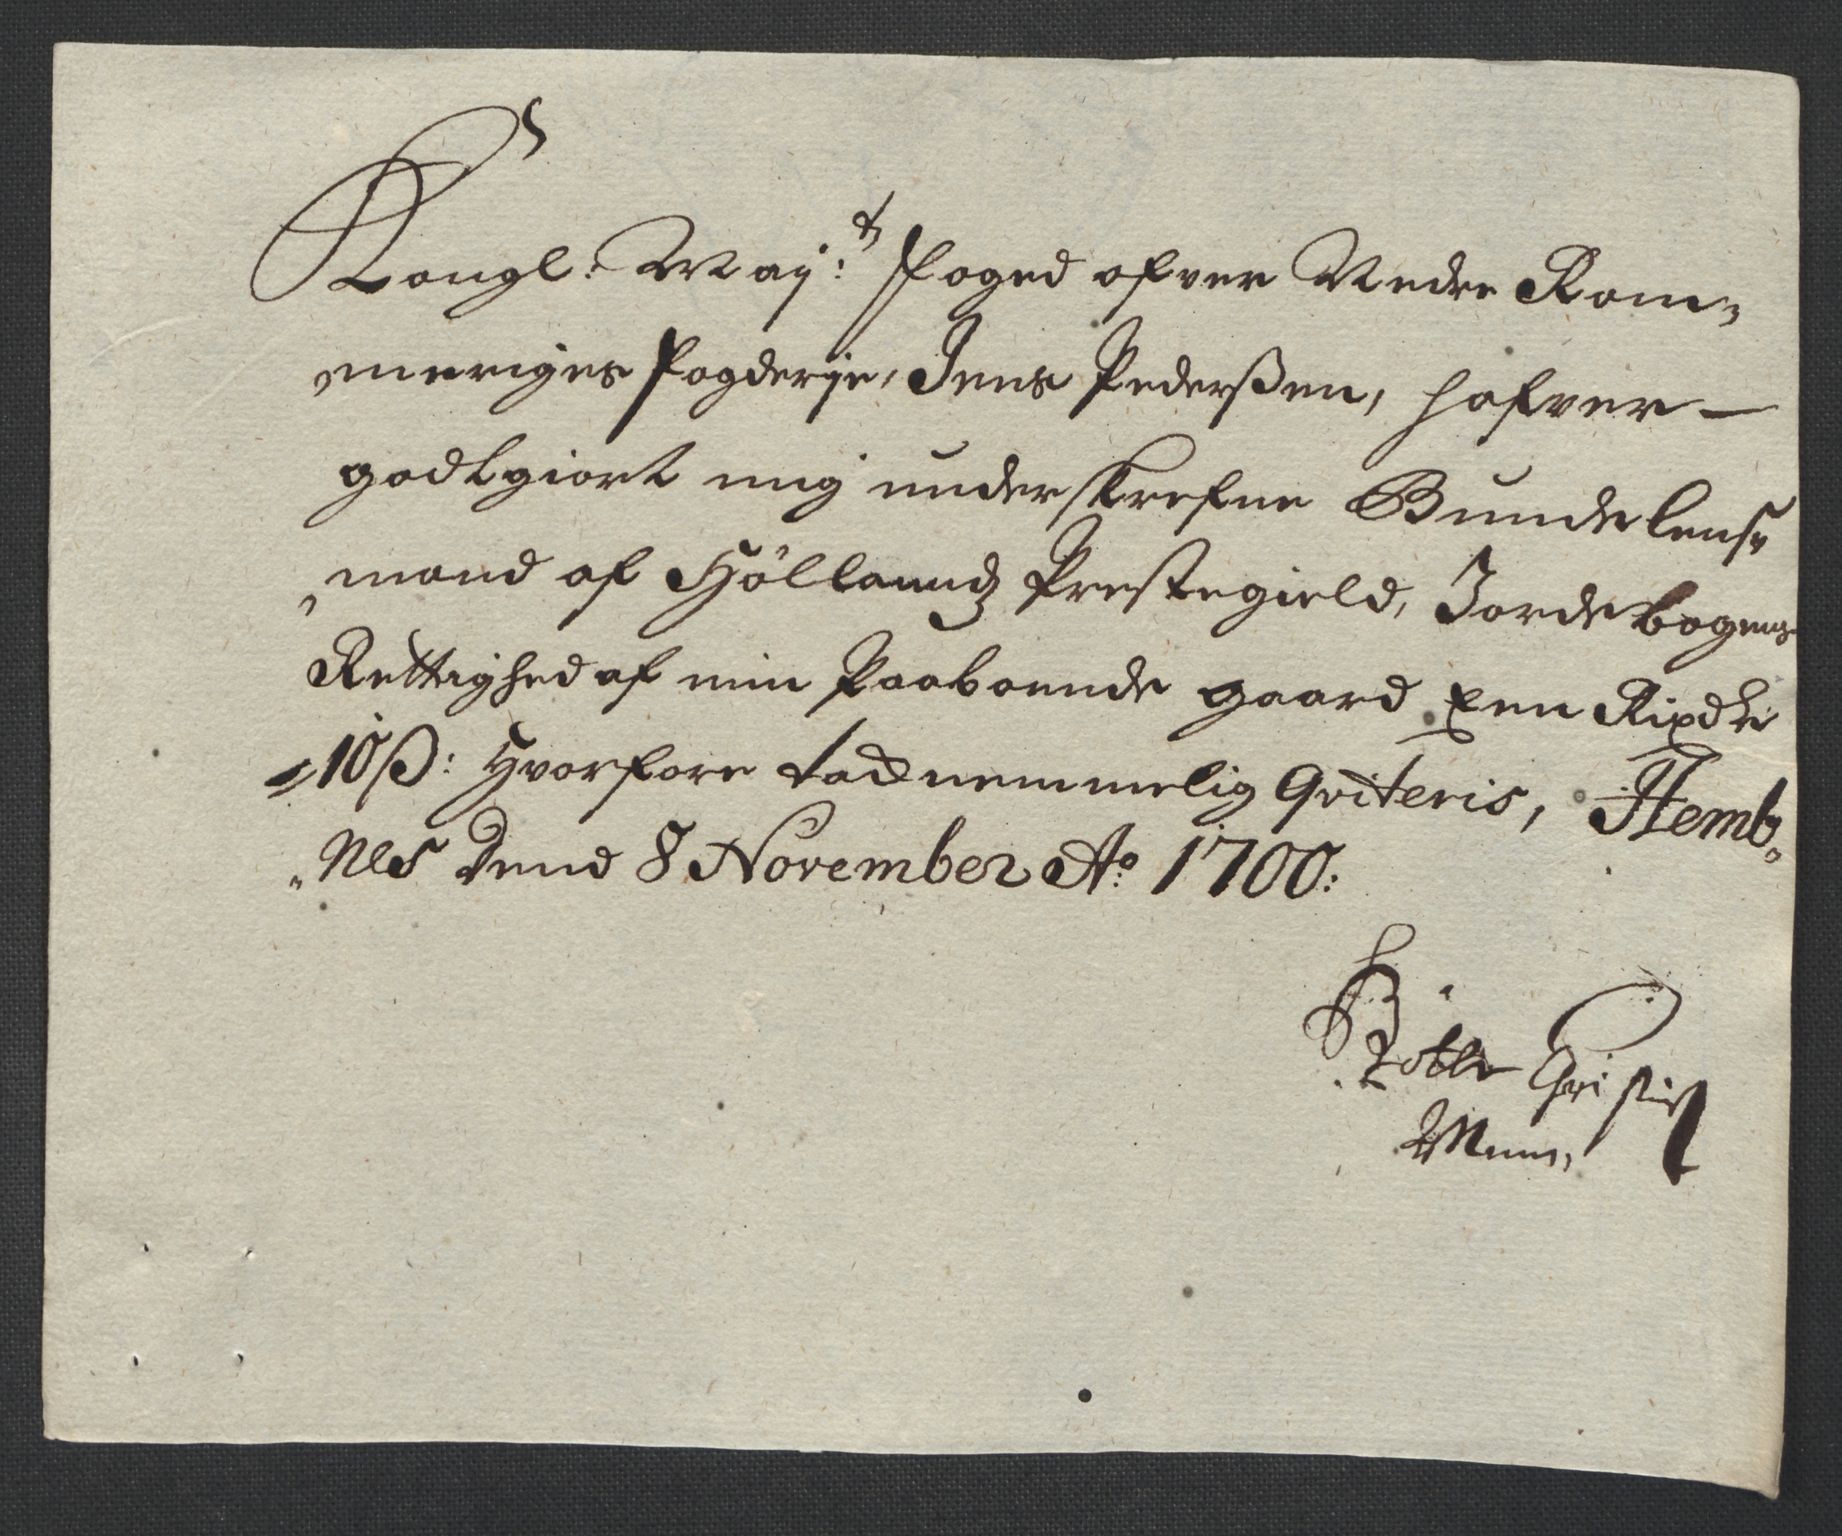 Kongl: May:t Foged ofver Nedre Rom-
meriges Fogderje, Jens Pederßen, hafver
godtgiort mig underskrefne Bundelens-
mand af Höllaundz Prestegield, Jordebogens
Rettighed af min Paaboende gaard Een Rixdlr
10 ß: Hvorfore tacknemmelig Qviteris, Hemb-
Nes Dend 8 November Ao: 1700: